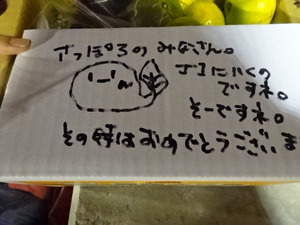 さっぽろの みなさん。
です ネ。
そーですネ。
その節はおめでとうございま